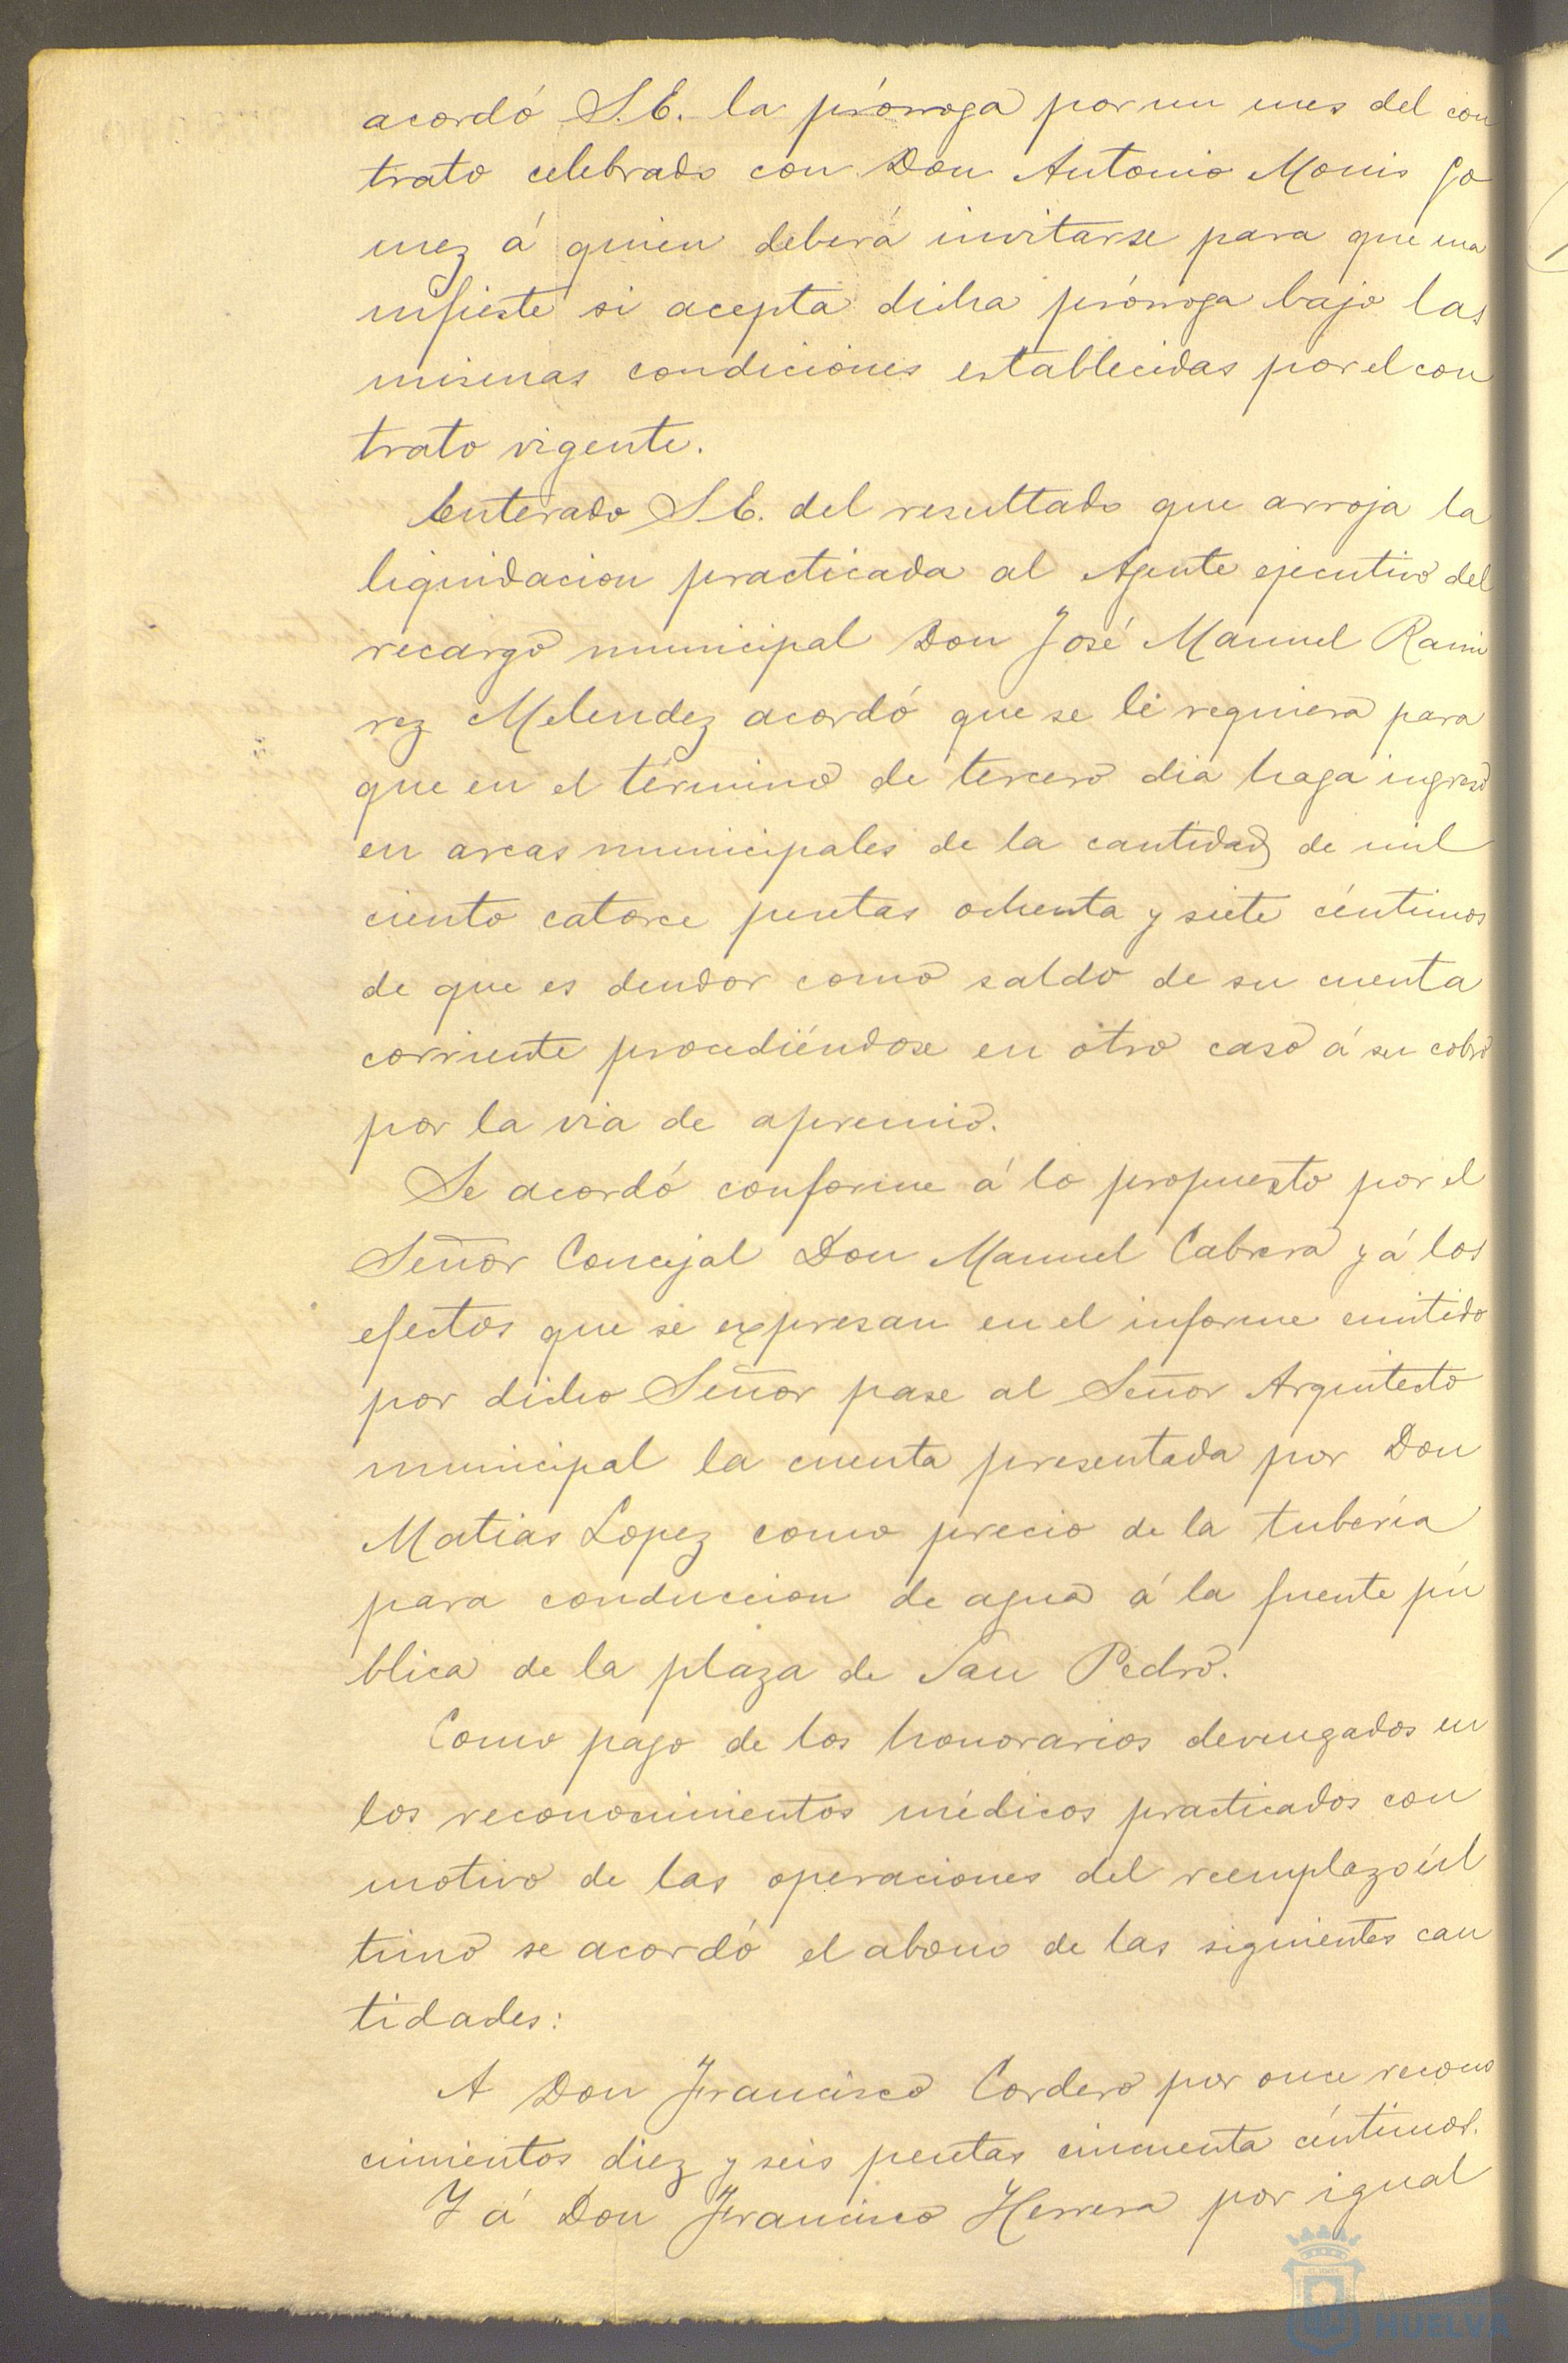 acordó S.E. la prórroga por un mes del con
trato celebrado con Don Antonio Monis Go
mez á quien deberá invitarse para que ma
nifieste si acepta dicha prórroga bajo las
mismas condiciones establecidas por el con
trato vigente.
Enterado S.E. del resultado que arroja la
liquidacion practicada al Agente ejecutivo del
recargo municipal Don José Manuel Rami
rez Melendez acordó que se le requiera para
que en el término de tercero dia haga ingreso
en arcas municipales de la cantidad de mil
ciento catorce pesetas ochenta y siete céntimos
de que es deudor como saldo de su cuenta
corriente procediéndose en otro caso á su cobro
por la via de apremio.
Se acordó conforme á lo propuesto por el
Señor Concejal Don Manuel Cabrera y á los
efectos que se expresan en el informe emitido
por dicho Señor pase al Señor Arquitecto
municipal la cuenta presentada por Don
Matias Lopez como precio de la tubería
para conduccion de agua á la fuente pú
blica de la plaza de San Pedro.
Como pago de los honorarios devengados en
los reconocimientos médicos practicados con
motivo de las operaciones del reemplazo úl
timo se acordó el abono de las siguientes can
tidades:
A Don Francisco Cordero por once recono
cimientos diez y seis pesetas cincuenta céntimos.
Y á Don Francisco Herrera por igual
HUELVA